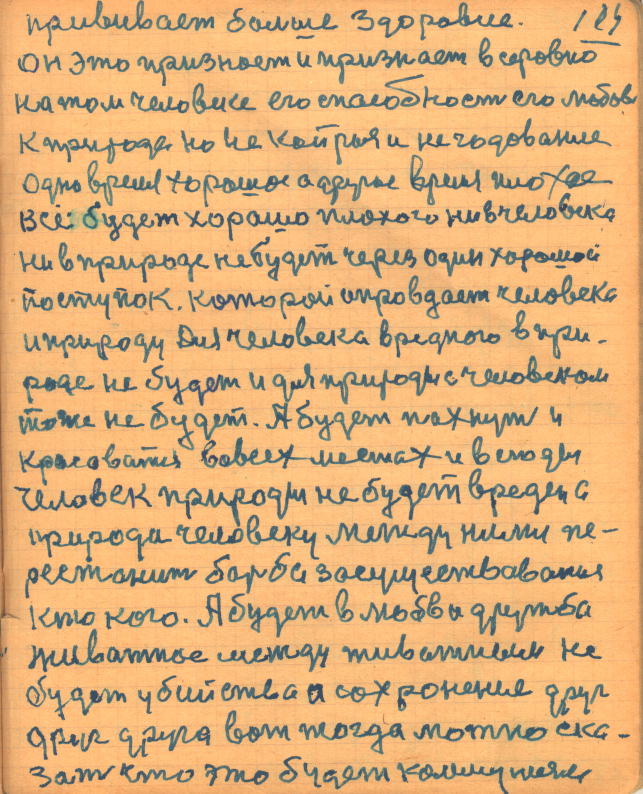 прививает больше здоровие. 124
он это признает и признает всеровно
на том человеке его способност его любов
к природе но не и не годование
одно время хорошое а другое время плохое
все будет хорошо плохого ни в человека
ни в природе не будет через один хороший
поступок. которой оправдает человека
и природу Для человека вредного в при-
роде не будет и для природы с человеком
тоже не будет. А будет пахнут и
красоватся во всех местах и всюды
человек природы не будет вреден а
природа человеку между ними пе-
рестанит борба засуществавания
кто кого. А будет в любвы дружба
живатное между животным не
будет убийства а сохронение друг
друг друга вот тогда можно ска-
зат что это будет коммунизм